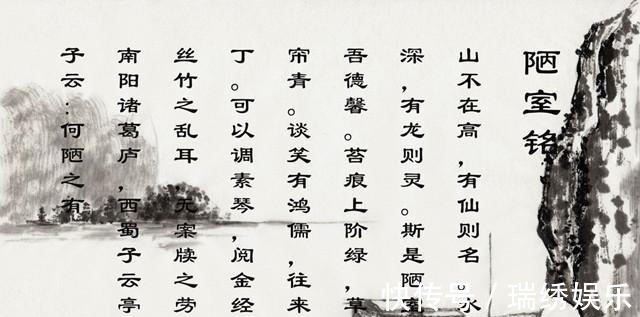 陋室铭
山不在高，有仙则名。水
深，有龙则灵。斯是陋室
吾德馨。苔痕上阶绿，草
帘青。谈笑有鸿儒，往来
丁。可以调素琴，阅金经
丝竹之乱耳 无案牍之劳
南阳诸葛庐，西蜀子云亭
子云：何陋之有
快传号/瑞绣娱乐